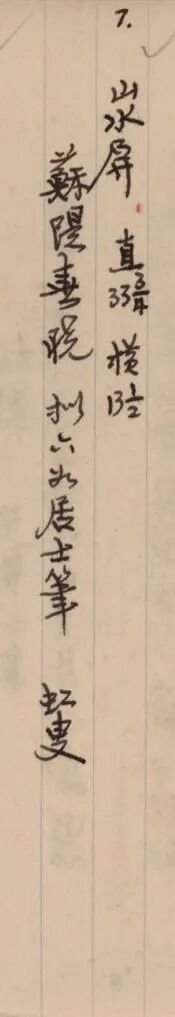 7.
山水屏 直33¾ 橫13½
蘇隄春曉 拟六如居士筆 虹叟